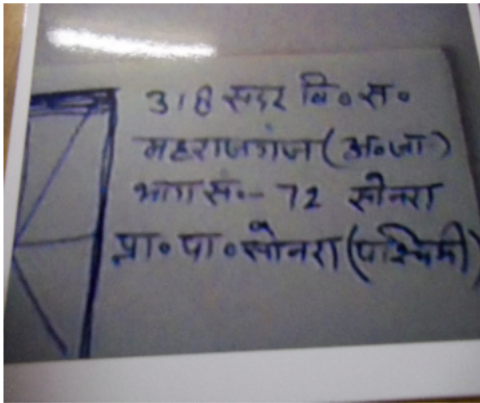 318 सदर वि०स०
महराजगंज (अ०जा०)
भाग स०- 72 सोनरा
प्रा०पा० सोनरा (पश्चिमी)